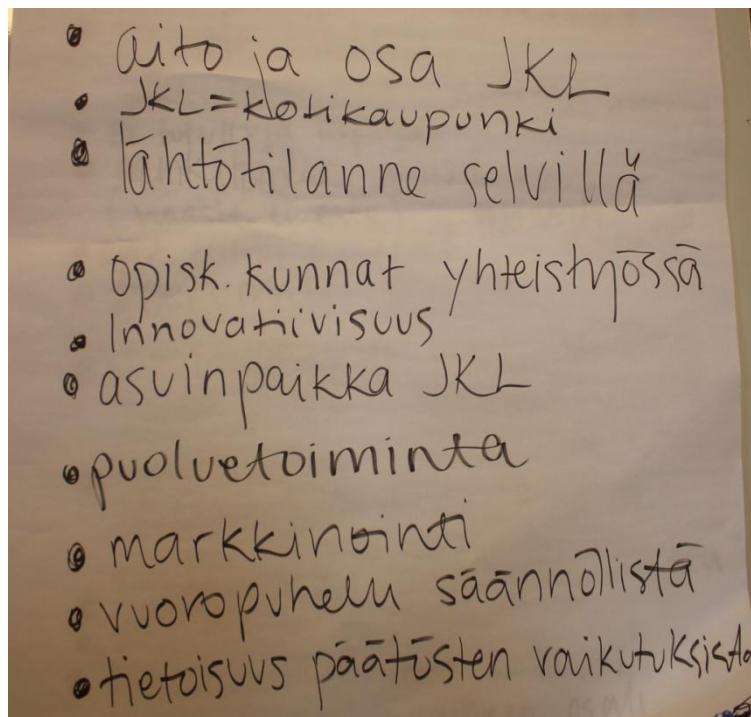 • aito ja osa JKL
• JKL=kotikaupunki
• lähtötilanne selvillä
• opisk. kunnat yhteistyössä
• Innovatiivisuus
• asuinpaikka JKL
• puoluetoiminta
• markkinointi
• vuoropuhelu säännöllistä
• tietoisuus päätösten vaikutuksista